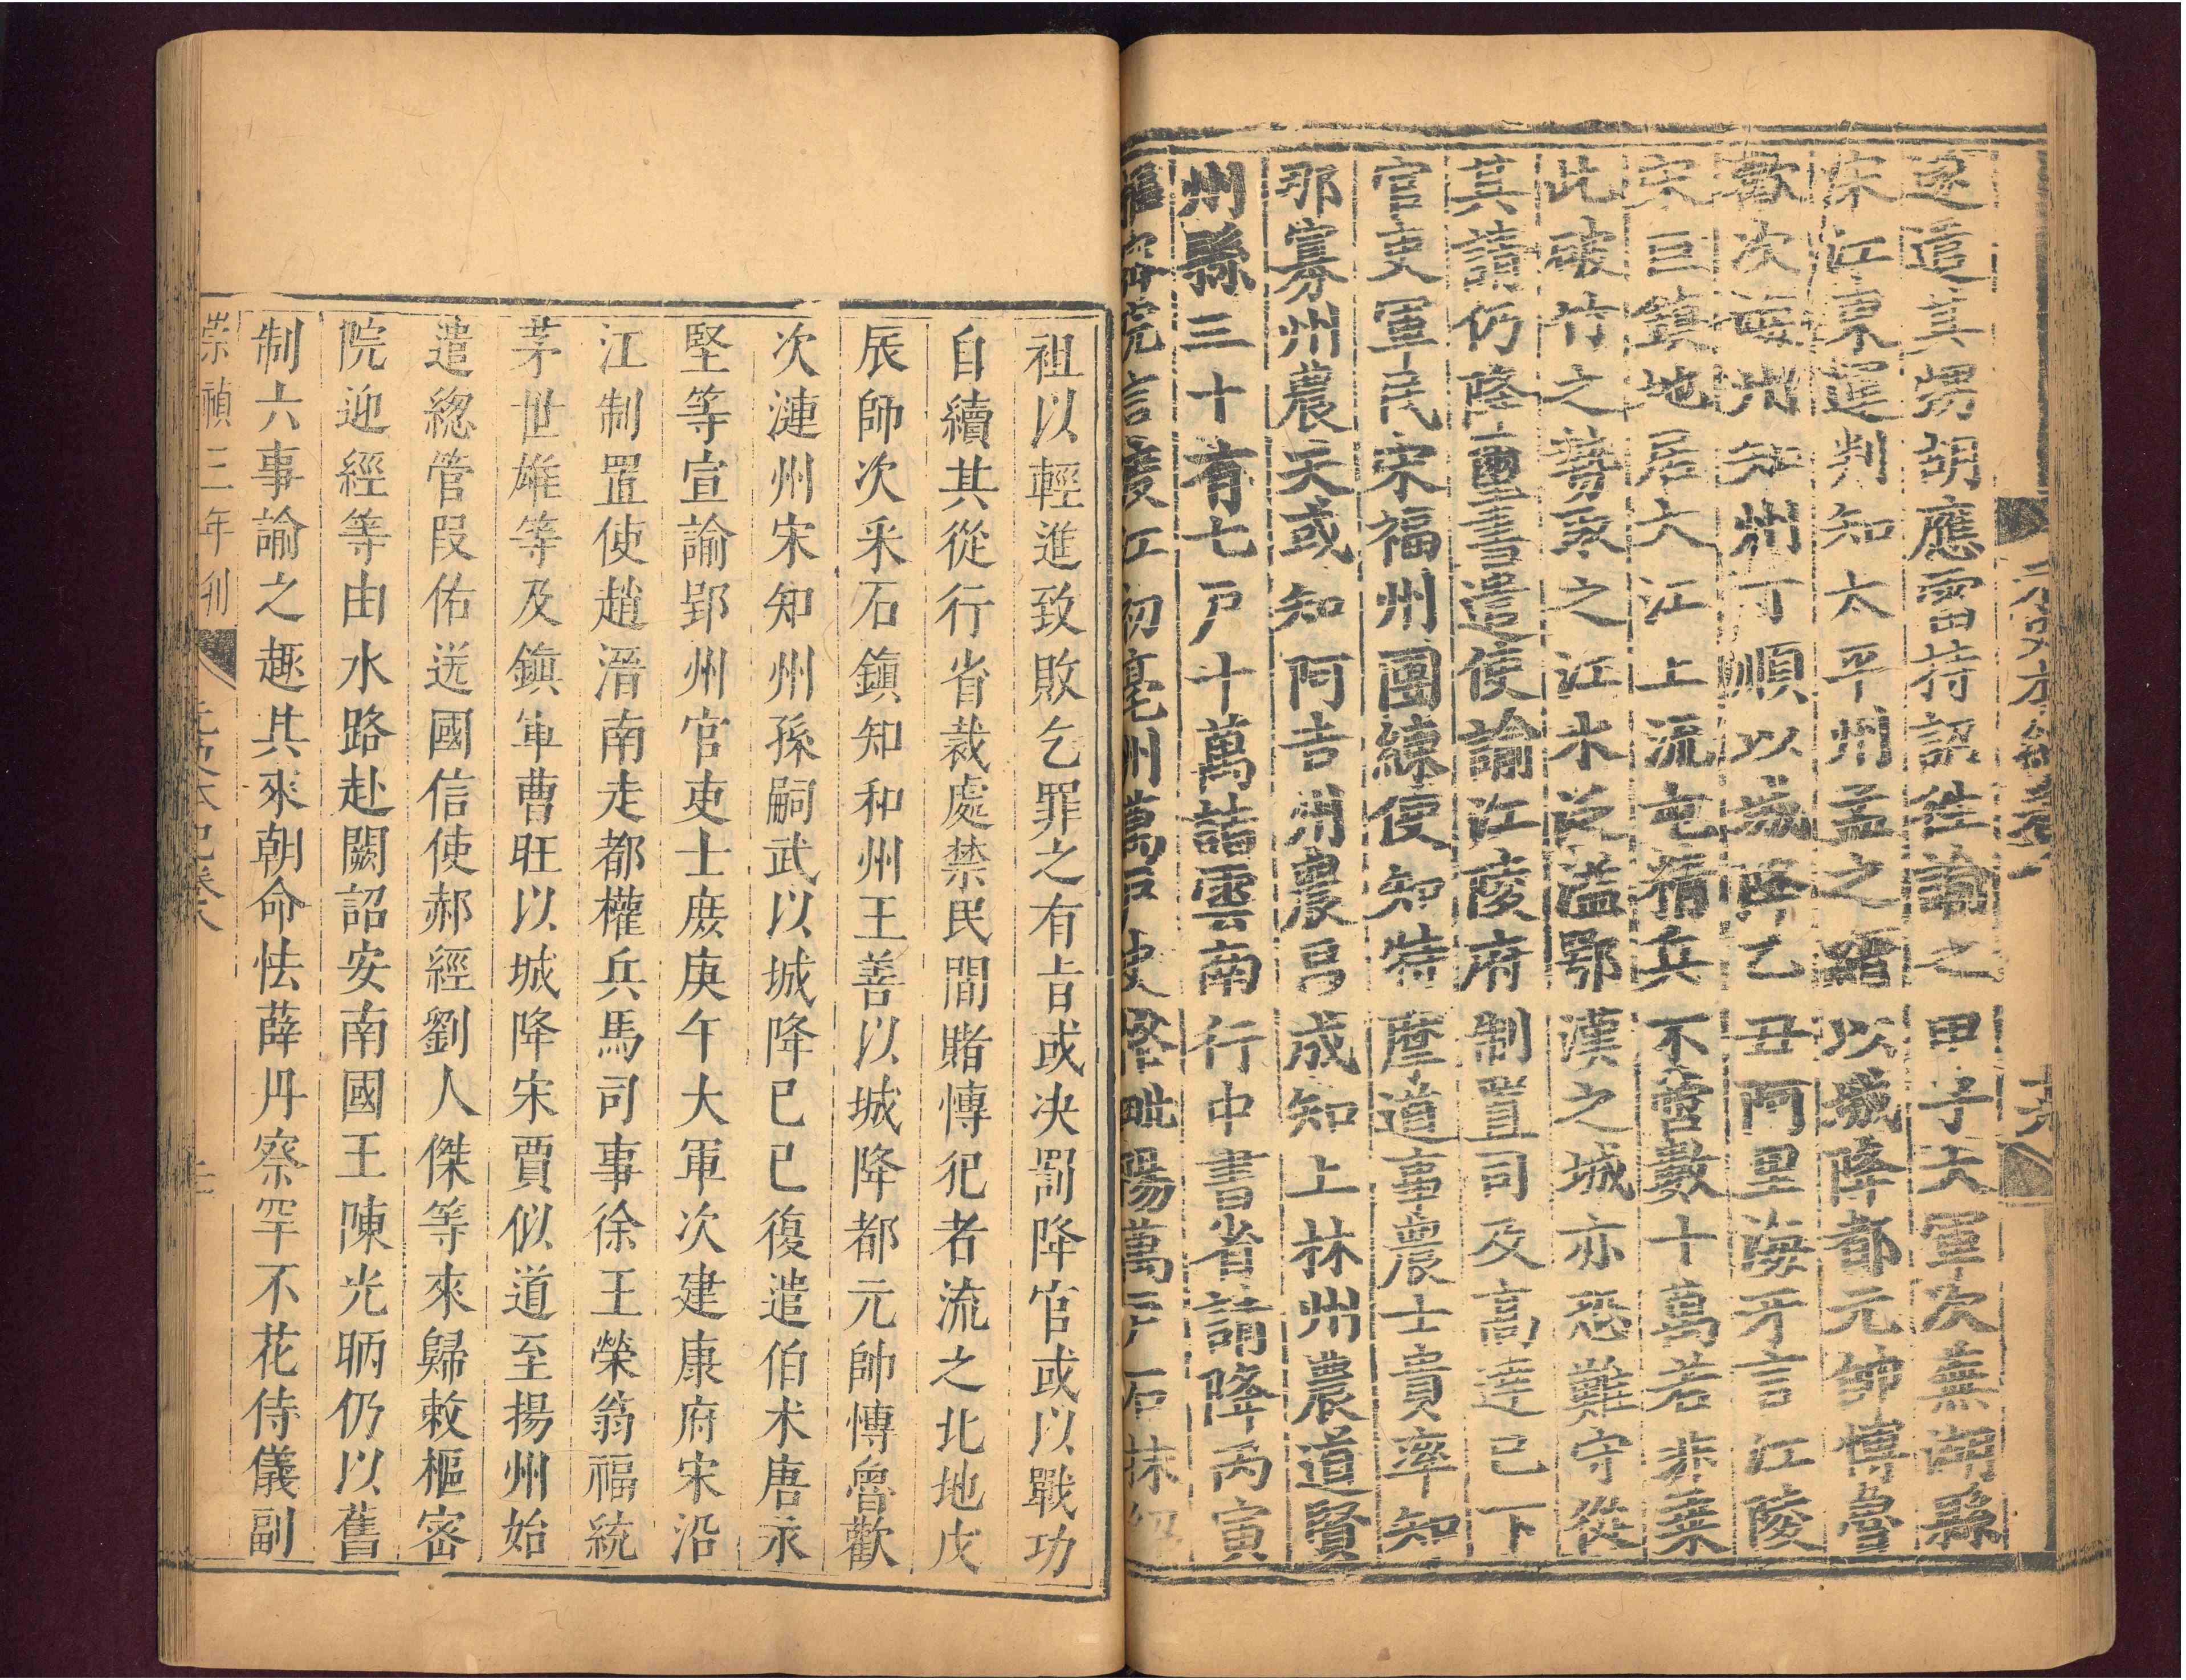 遂遣其甥胡應雷持詔往諭之甲子大軍次蕪湖縣
宋江東運判知太平州孟之縉以城降都元帥博魯
歡次海州知州丁順以城降乙丑阿里海牙言江陵
宋巨鎮地居大江上流屯精兵不啻數十萬若非乗
此破竹之勢取之江水泛溢鄂漢之城亦恐難守從
其請仍降璽書遣使諭江陵府制置司及高達已下
官吏軍民宋福州團練使知特摩道事農士貴率知
那寡州農天或知阿吉州農昌成知上林州農道賢
州縣三十有七戸十萬詣雲南行中書省請降丙寅
樞密院言渡江初亳州萬戸史格毗陽萬戸石抹紹
元史本紀卷八
祖以輕進致敗乞罪之有㫖或决罰降官或以戰功
自續其從行省裁處禁民間賭愽犯者流之北地戊
辰師次采石鎮知和州王善以城降都元帥愽魯歡
次漣州宋知州孫嗣武以城降已巳復遣伯术唐永
堅等宣諭郢州官吏士庻庚午大軍次建康府宋沿
江制置使趙溍南走都權兵馬司事徐王榮翁福統
茅世雄等及鎮軍曹旺以城降宋賈似道至揚州始
遣緫管叚佑送國信使郝經劉人傑等來歸敕樞密
院迎經等由水路赴闕詔安南國王陳光昞仍以舊
制六事諭之趣其來朝命怯薛丹察罕不花侍儀副
崇禎三年刊 元史本紀卷八